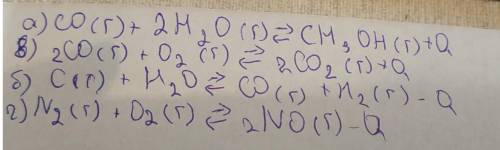 а) CO(г) + 2H₂O(г) ⇄ CH₃OH(г)+Q
в) 2CO(г) + O₂(г) ⇄ 2CO₂(г)+Q
б) C(г) + H₂O ⇄ CO(г) + H₂(г) - Q
г) N₂(г) + O₂(г) ⇄ 2NO(г) - Q